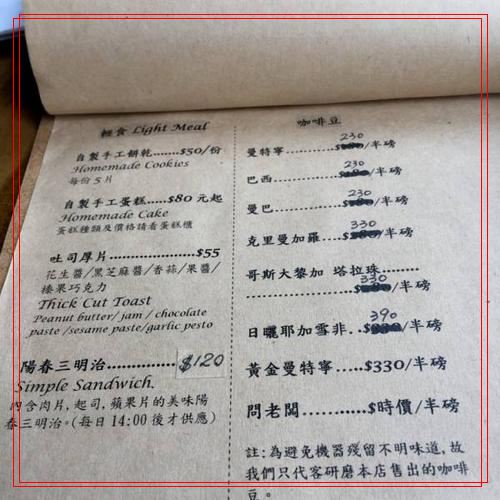 輕食 Light Meal
自製手工餅乾.......$50/份
Homemade Cookies
每份 5 片
自製手工蛋糕.....$80 元起
Homemade Cake
蛋糕種類及價格請看蛋糕櫃
吐司厚片................$55
花生醬/黑芝麻醬/香蒜/果醬/
榛果巧克力
Thick Cut Toast
Peanut butter/ jam / chocolate
paste /sesame paste/garlic pesto
陽春三明治.............. $120
Simple Sandwich.
內含肉片, 起司, 蘋果片的美味陽
春三明治。(每日 14:00 後才供應)
咖啡豆
曼特寧.............. 230 /半磅
巴西.................. 230 /半磅
曼巴.................. 230 /半磅
克里曼加羅...... 330 /半磅
哥斯大黎加 塔拉珠.........
330 /半磅
日曬耶加雪非.. 390 /半磅
黃金曼特寧....$330/半磅
問老闆............$時價/半磅
註:為避免機器殘留不明味道,故
我們只代客研磨本店售出的咖啡
豆。